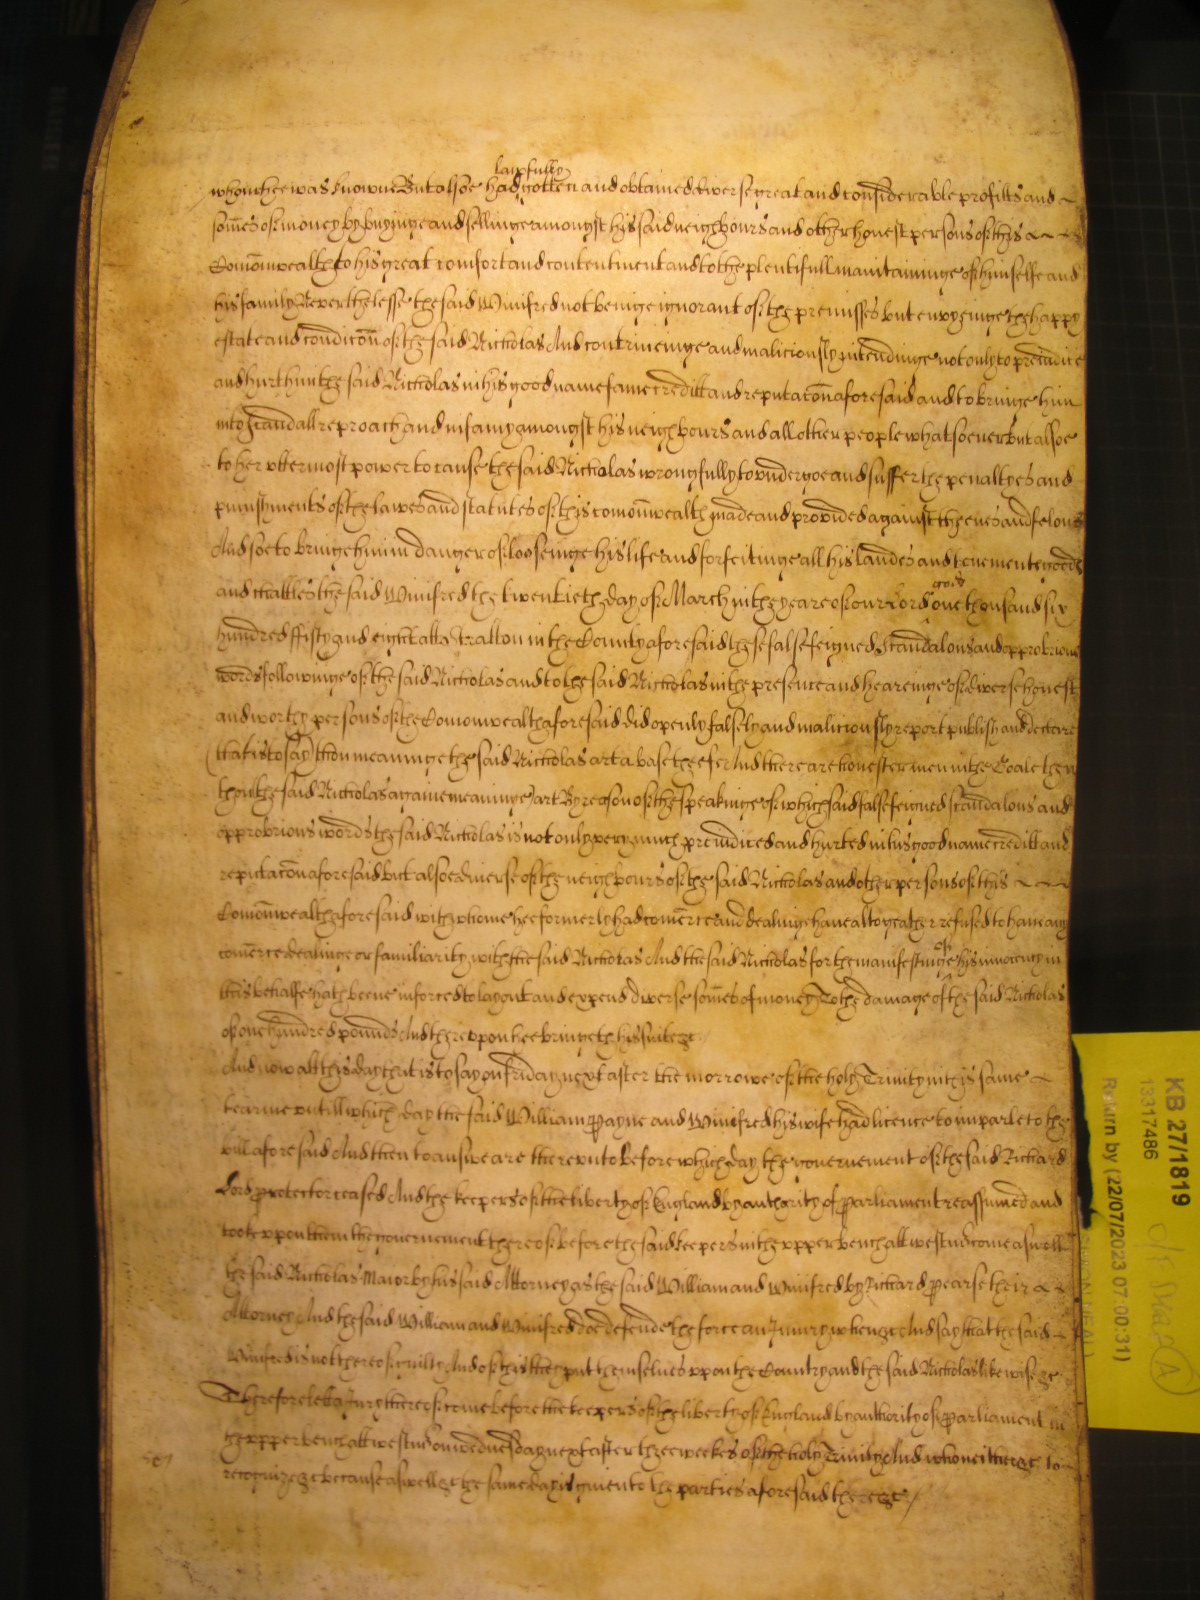 whom hee was knowne But alsoe had lawfully gotten and obtained diverse great and considerable profitts and
som̃es of money by buyinge and sellinge amongst his said neighbours and other honest persons of this
Com̃onwealth to his great comfort and contentment and to the plentifull maintaininge of himselfe and
his family Neverthelesse the said Winifred not beinge ignorant of the premisses but envyeinge the happy
estate and condic̃on of the said Nicholas And contriveinge and maliciously intendinge not only to preiudice
and hurt him the said Nicholas in his good name fame creditt and reputac̃on aforesaid and to bringe him
into scandall reproach and infamy amongst his neighbours and all other people whatsoever but alsoe
to her uttermost power to cause the said Nicholas wrongfully to undergoe and suffer the penaltyes and
punishments of the lawes and statutes of this com̃onwealth made and provided against theeves and felons
And soe to bringe him in danger of looseinge his life and forfeitinge all his landes and tenements goods
and chattles the said Winifred the twentieth day of March in the yeare of our Lord god one thousand six
hundred fifty and eight att Tralton in the County aforesaid these false feigned scandalous and opprobrious
words followinge of the said Nicholas and to the said Nicholas in the presence and heareinge of diverse honest
and worthy persons of the Com̃onwealth aforesaid did openly falsely and maliciously report publish and declare
(that is to say) thou meaninge the said Nicholas art a base theefe And there are honester men in the Goale then
thou the said Nicholas againe meaninge art By reason of the speakinge of which said false feigned scandalous and
opprobrious words the said Nicholas is not only very much preiudiced and hurted in his good name creditt and
reputac̃on aforesaid but alsoe diverse of the neighbours of the said Nicholas and other persons of this
Com̃onwealth aforesaid with whome hee formerly had com̃erce and dealinge have altogeather refused to have any
com̃erce dealinge or familiarity with the said Nicholas And the said Nicholas for the manifestinge of his innocency in
this behalfe hath beene inforced to lay out and expend diverse som̃es of money To the damage of the said Nicholas
of one hundred pounds And thereupon hee bringeth his suite &c
And now att this day that is to say on Friday next after the morrowe of the holy Trinity in this same
tearme untill which day the said William Payne and Winifred his wife had licence to imparle to the
bill aforesaid And then to answeare thereunto before which day the governement of the said Richard
Lord protector ceased And the keepers of the liberty of England by authority of Parliament reassumed and
tooke upon them the governement thereof before the said keepers in the upper bench att Westm̃ come aswell
the said Nicholas Maior by his said Attorney as the said William and Winifred by Richard Pearse their
Attorney And the said William and Winifred doe defende the force and Iniury when &c And say that the said
Winifred is not thereof guilty And of this they put themselves upon the Country and the said Nicholas likewise &c
Therefore lett a Jury thereof come before the keepers of the liberty of England by authority of Parliament in
the upper bench att Westm̃ on wednesday next after three weekes of the holy Trinity And who neither &c to
recognize &c because aswell &c the same day is given to the parties aforesaid there &c /
KB 27/1819
13317486
Return by (22/07/2023 07:00:31)